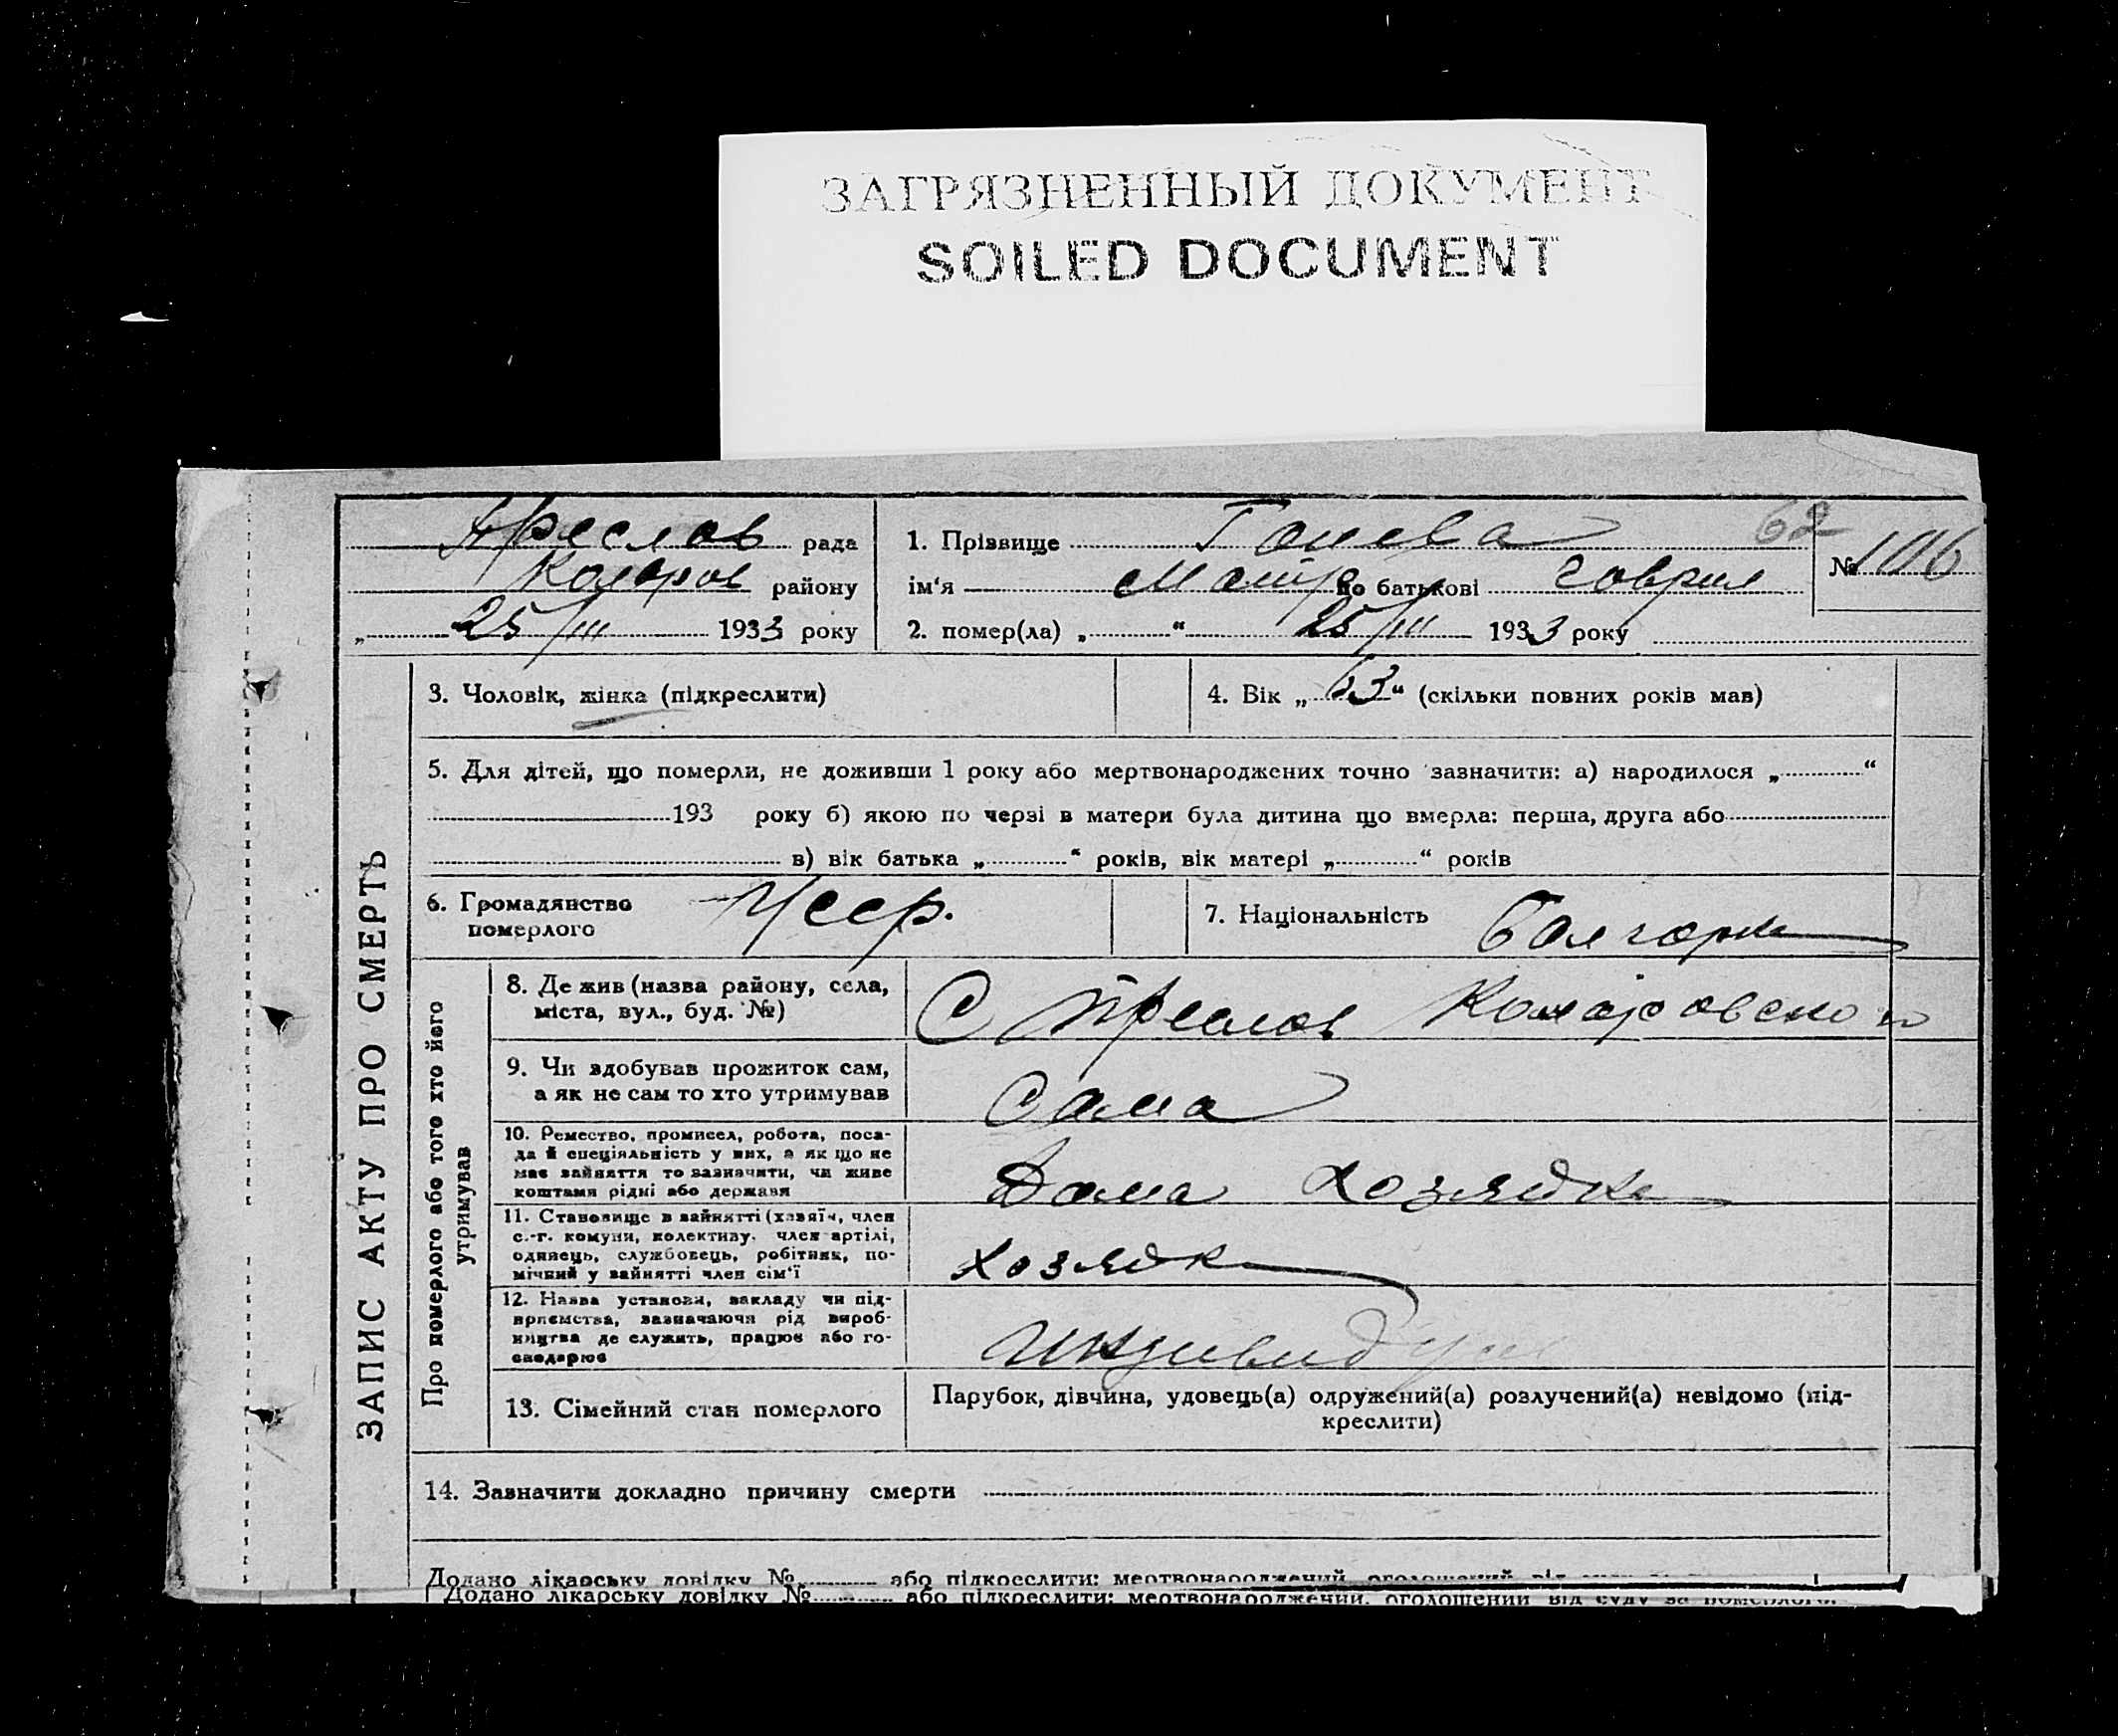 ЗАГРЯЗНЕННЫЙ ДОКУМЕНТ
SOILED DOCUMENT
рада
Коларов району
„ 25/III 1933 року
1. Прізвище Ганева
ім‘я по батькові Гаврил
62
№ 106
2. помер(ла) „ “ 25/III 1933 року
ЗАПИС АКТУ ПРО СМЕРТЬ
3. Чоловік, жінка (підкреслити)
4. Вік „ 63 “ (скільки повних років мав)
5. Для дітей, що померли, не доживши 1 року або мертвонароджених точно зазначити: а) народилося „ “
193 року б) якою по черзі в матери була дитина що вмерла: перша, друга або
в) вік батька „ “ років, вік матері „ “ років
6. Громадянство
померлого
Усср.
7. Національність Болгарка
Про померлого або того хто його
утримував
8. Де жив (назва району, села,
міста, вул., буд. №)
С Преслов Коларовского
9. Чи здобував прожиток сам,
а як не сам то хто утримував
Сама
10. Ремество, промисел, робота, поса-
да й спеціяльність у них, а як що не
має зайняття то зазначити, чи живе
коштами рідні або держави
Дома хозяйка
11. Становище в зайнятті (хазяїн, член
с.-г. комуни, колективу, член артілі,
одинець, службовець, робітник, по-
мічний у зайнятті член сім‘ї
хозяйка
12. Назва установи, закладу чи під-
приємства, зазначаючи рід вироб-
ництва де служить, працює або го-
сподарює
13. Сімейний стан померлого
Парубок, дівчина, удовець(а) одружений(а) розлучений(а) невідомо (під-
креслити)
14. Зазначити докладно причину смерти
Додано лікарську довідку № або підкреслити: мертвонароджений, оголошений від
Додано лікарську довідку № або підкреслити: мертвонароджений, оголошений від суду за померлого.